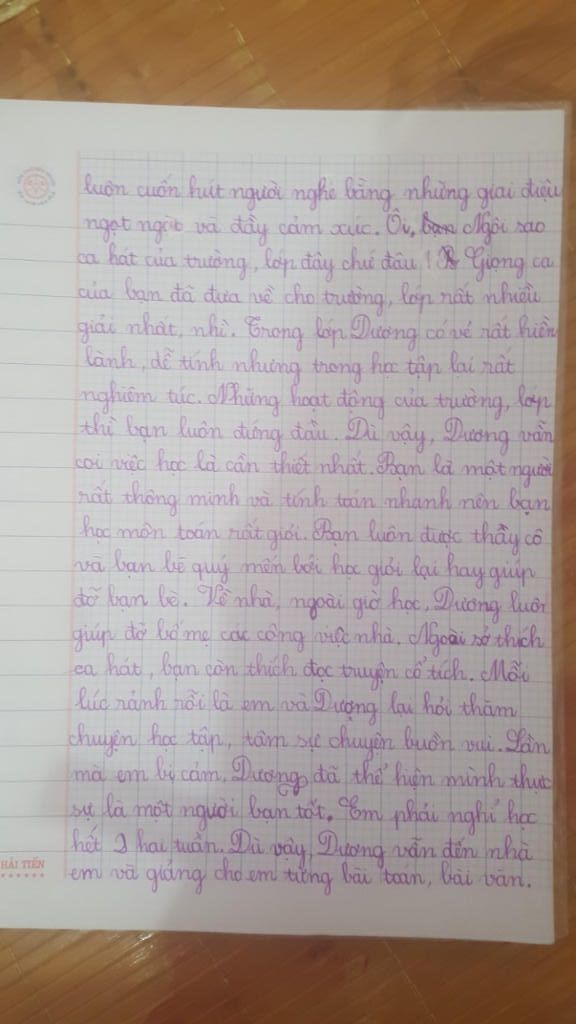 luôn cuốn hút người nghe bằng những giai điệu
ngọt ngào và đầy cảm xúc. Ôi, Ngôi sao
ca hát của trường, lớp đây chứ đâu! Giọng ca
của bạn đã đưa về cho trường, lớp rất nhiều
giải nhất, nhì. Trong lớp Dương có vẻ rất hiền
lành, dễ tính nhưng trong học tập lại rất
nghiêm túc. Những hoạt động của trường, lớp
thì bạn luôn đứng đầu. Dù vậy, Dương vẫn
coi việc học là cần thiết nhất. Bạn là một người
rất thông minh và tính toán nhanh nên bạn
học môn toán rất giỏi. Bạn luôn được thầy cô
và bạn bè quý mến bởi học giỏi lại hay giúp
đỡ bạn bè. Về nhà, ngoài giờ học, Dương luôn
giúp đỡ bố mẹ các công việc nhà. Ngoài sở thích
ca hát, bạn còn thích đọc truyện cổ tích. Mỗi
lúc rảnh rỗi là em và Dương lại hỏi thăm
chuyện học tập, tâm sự chuyện buồn vui. Lần
mà em bị cảm, Dương đã thể hiện mình thực
sự là một người bạn tốt. Em phải nghỉ học
hết hai tuần. Dù vậy, Dương vẫn đến nhà
em và giảng cho em từng bài toán, bài văn.
HẢI TIẾN